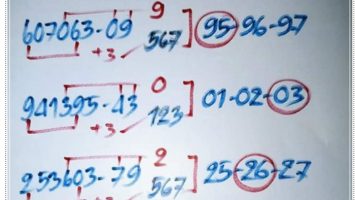 9
607063-09 567 95-96-97
+3
0
941395-43 123 01-02-03
+3
2
253603-79 567 25-26-27
+3